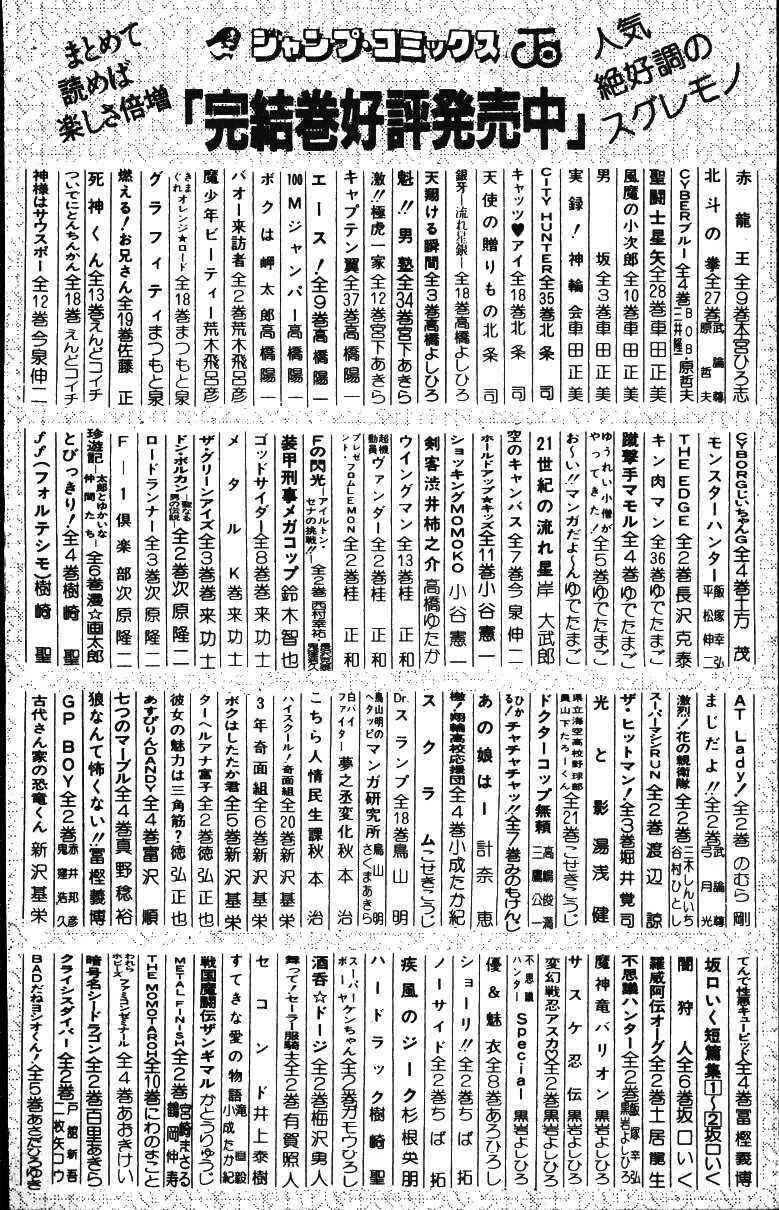 まとめて
読めば
楽しさ倍増
ジャンプ・コミックス
人気
絶好調の
スグレモノ
「完結巻好評発売中」
赤龍王 全9巻 本宮ひろ志
北斗の拳 全27巻 武論尊 原哲夫
CYBERブルー 全4巻 BOB・原哲夫 二井隆一
聖闘士星矢 全28巻 車田正美
風魔の小次郎 全10巻 車田正美
男坂 全3巻 車田正美
実録!神輪会 車田正美
CITY HUNTER 全35巻 北条司
キャッツ♥アイ 全18巻 北条司
天使の贈りもの 北条司
銀牙―流れ星 銀― 全18巻 高橋よしひろ
天翔ける瞬間 全3巻 高橋よしひろ
魁!!男塾 全34巻 宮下あきら
激!!極虎一家 全12巻 宮下あきら
キャプテン翼 全37巻 高橋陽一
エース! 全9巻 高橋陽一
100Mジャンパー 高橋陽一
ボクは岬太郎 高橋陽一
バオー来訪者 全2巻 荒木飛呂彦
魔少年ビーティー 荒木飛呂彦
きまぐれオレンジ★ロード 全18巻 まつもと泉
グラフィティ まつもと泉
燃える!お兄さん 全19巻 佐藤正
死神くん 全13巻 えんどコイチ
ついでにとんちんかん 全18巻 えんどコイチ
神様はサウスポー 全12巻 今泉伸二
CYBORGじいちゃんG 全4巻 土方茂
モンスターハンター 飯塚幸弘 平松伸二
THE EDGE 全2巻 長沢克泰
キン肉マン 全36巻 ゆでたまご
蹴撃手マモル 全4巻 ゆでたまご
ゆうれい小僧がやってきた! 全5巻 ゆでたまご
お〜い!!マンガだよ〜ん ゆでたまご
21世紀の流れ星 岸大武郎
空のキャンバス 全7巻 今泉伸二
ホールドアップ★キッズ 全11巻 小谷憲一
ショッキングMOMOKO 小谷憲一
剣客渋井柿之介 高橋ゆたか
ウイングマン 全13巻 桂正和
超機動員ヴァンダー 全2巻 桂正和
プレゼント・フロムLEMON 全2巻 桂正和
Fの閃光―アイルトン・セナの挑戦!!― 全2巻 西村幸祐
装甲刑事メガコップ 鈴木智也
ゴッドサイダー 全8巻 巻来功士
メタルK 巻来功士
ザ・グリーンアイズ 全3巻 巻来功士
ドン・ボルカン―聖なる男の伝説― 全2巻 次原隆二
ロードランナー 全3巻 次原隆二
F―1倶楽部 次原隆二
珍遊記―太郎とゆかいな仲間たち― 全6巻 漫☆画太郎
とびっきり! 全4巻 樹崎聖
ff(フォルテシモ) 樹崎聖
AT Lady! 全2巻 のむら剛
まじだよ!! 全2巻 武論尊 弓月光
激烈!花の親衛隊 全2巻 三木しんいち 谷村ひとし
スーパーマシンRUN 全2巻 渡辺諒
ザ・ヒットマン! 全3巻 堀井覚司
光と影 湯浅健
県立海空高校野球部員山下たろーくん 全21巻 こせきこうじ
ドクターコップ無頼 高嶋俊満 三鷹公一
ひかる!チャチャチャッ!! 全7巻 みのもけんじ
あの娘は― 計奈恵
檄!翔輪高校応援団 全4巻 小成たか紀
スクラム こせきこうじ
Dr.スランプ 全18巻 鳥山明
鳥山明のヘタッピマンガ研究所 鳥山明 さくまあきら
白バイファイター 夢之丞変化 秋本治
こちら人情民生課 秋本治
ハイスクール!奇面組 全20巻 新沢基栄
3年奇面組 全6巻 新沢基栄
ボクはしたたか君 全5巻 新沢基栄
ターヘルアナ富子 全2巻 徳弘正也
彼女の魅力は三角筋? 徳弘正也
あすぴりんDANDY 全4巻 富沢順
七つのマーブル 全4巻 真野稔裕
狼なんて怖くない!! 冨樫義博
GP BOY 全2巻 赤井邦彦 鬼窪浩久
古代さん家の恐竜くん 新沢基栄
てんで性悪キューピッド 全4巻 冨樫義博
坂口いく短篇集①〜② 坂口いく
闇狩人 全6巻 坂口いく
羅威阿伝オーグ 全2巻 土居龍生
不思議ハンター 全2巻 飯塚幸弘 黒岩よしひろ
魔神竜バリオン 黒岩よしひろ
サスケ忍伝 黒岩よしひろ
変幻戦忍アスカ♡ 全2巻 黒岩よしひろ
不思議ハンターSpecial 黒岩よしひろ
優&魅衣 全8巻 あろひろし
ショーリ!! 全2巻 ちば拓
ノーサイド 全2巻 ちば拓
疾風のジーク 杉根央朋
ハードラック 樹崎聖
スーパーケンちゃんボーヤ 全2巻 ガモウひろし
酒呑☆ドージ 全2巻 梅沢勇人
舞って!セーラー服騎士 全2巻 有賀照人
セコンド 井上泰樹
すてきな愛の物語 滝直毅 小成たか紀
戦国魔闘伝ザンギマル かとうりゅうじ
METAL FINISH 全2巻 宮崎まさる 鶴岡伸寿
THE MOMOTAROH 全10巻 にわのまこと
われらホビーズファミコンゼミナール 全4巻 あおきけい
暗号名シードラゴン 全2巻 百里あきら
クライシスダイバー 全2巻 戸舘新吾 二枚矢コウ
BADだねヨシオくん! 全5巻 あさだひろゆき